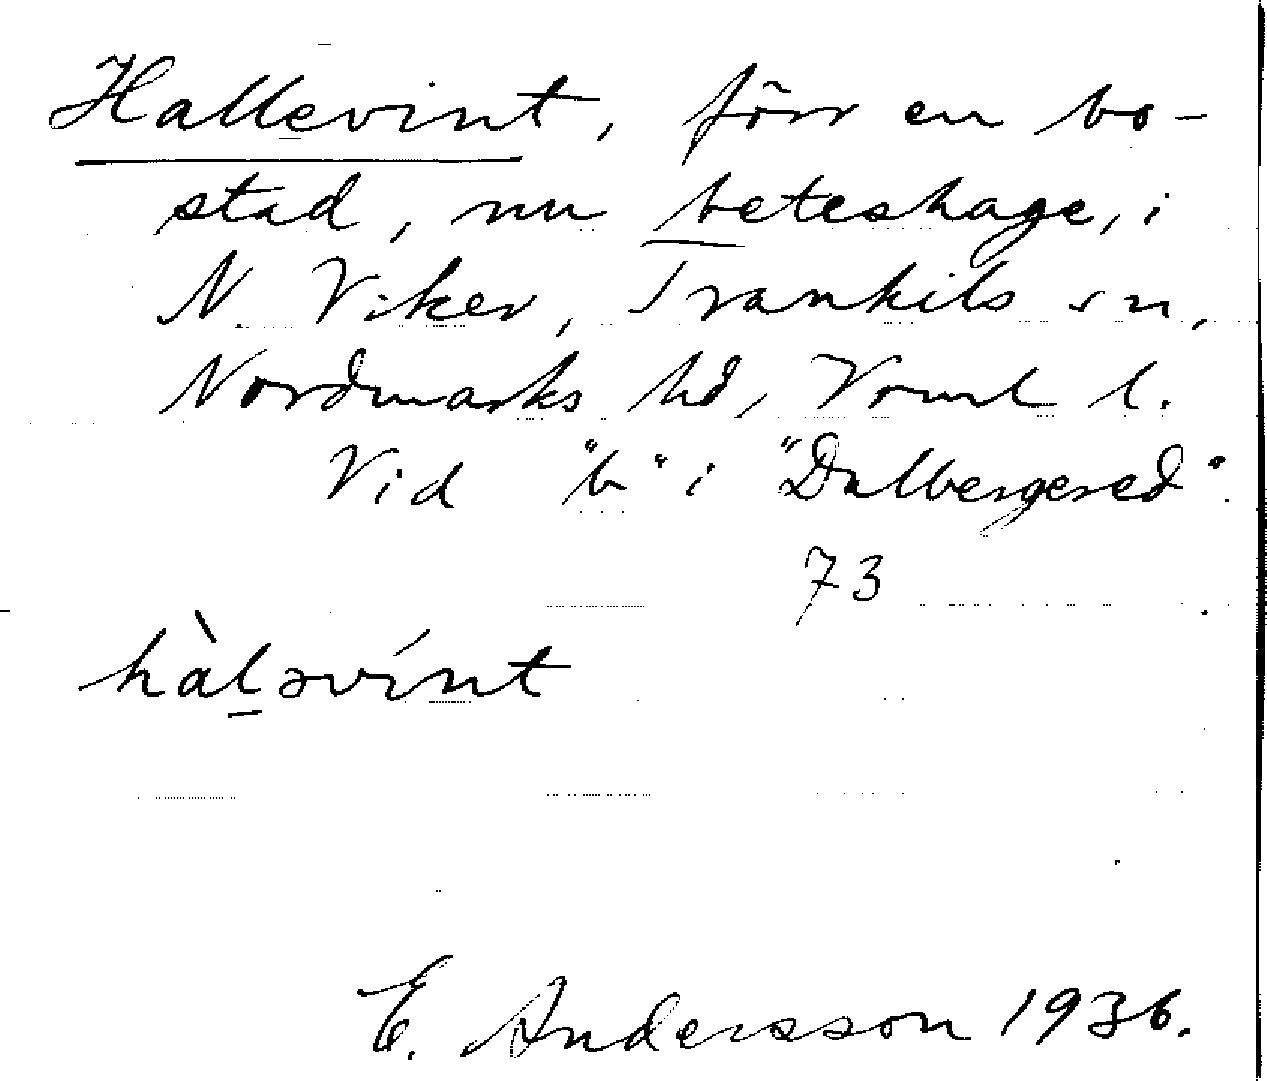 Hallevint, förr en bo-
stad, nu beteshage, i
N. Viker, Trankils sn,
Nordmarks hd, Vrml l.
Vid "b" i "Dalbergered".
73
hàləvínt
E. Andersson 1936.